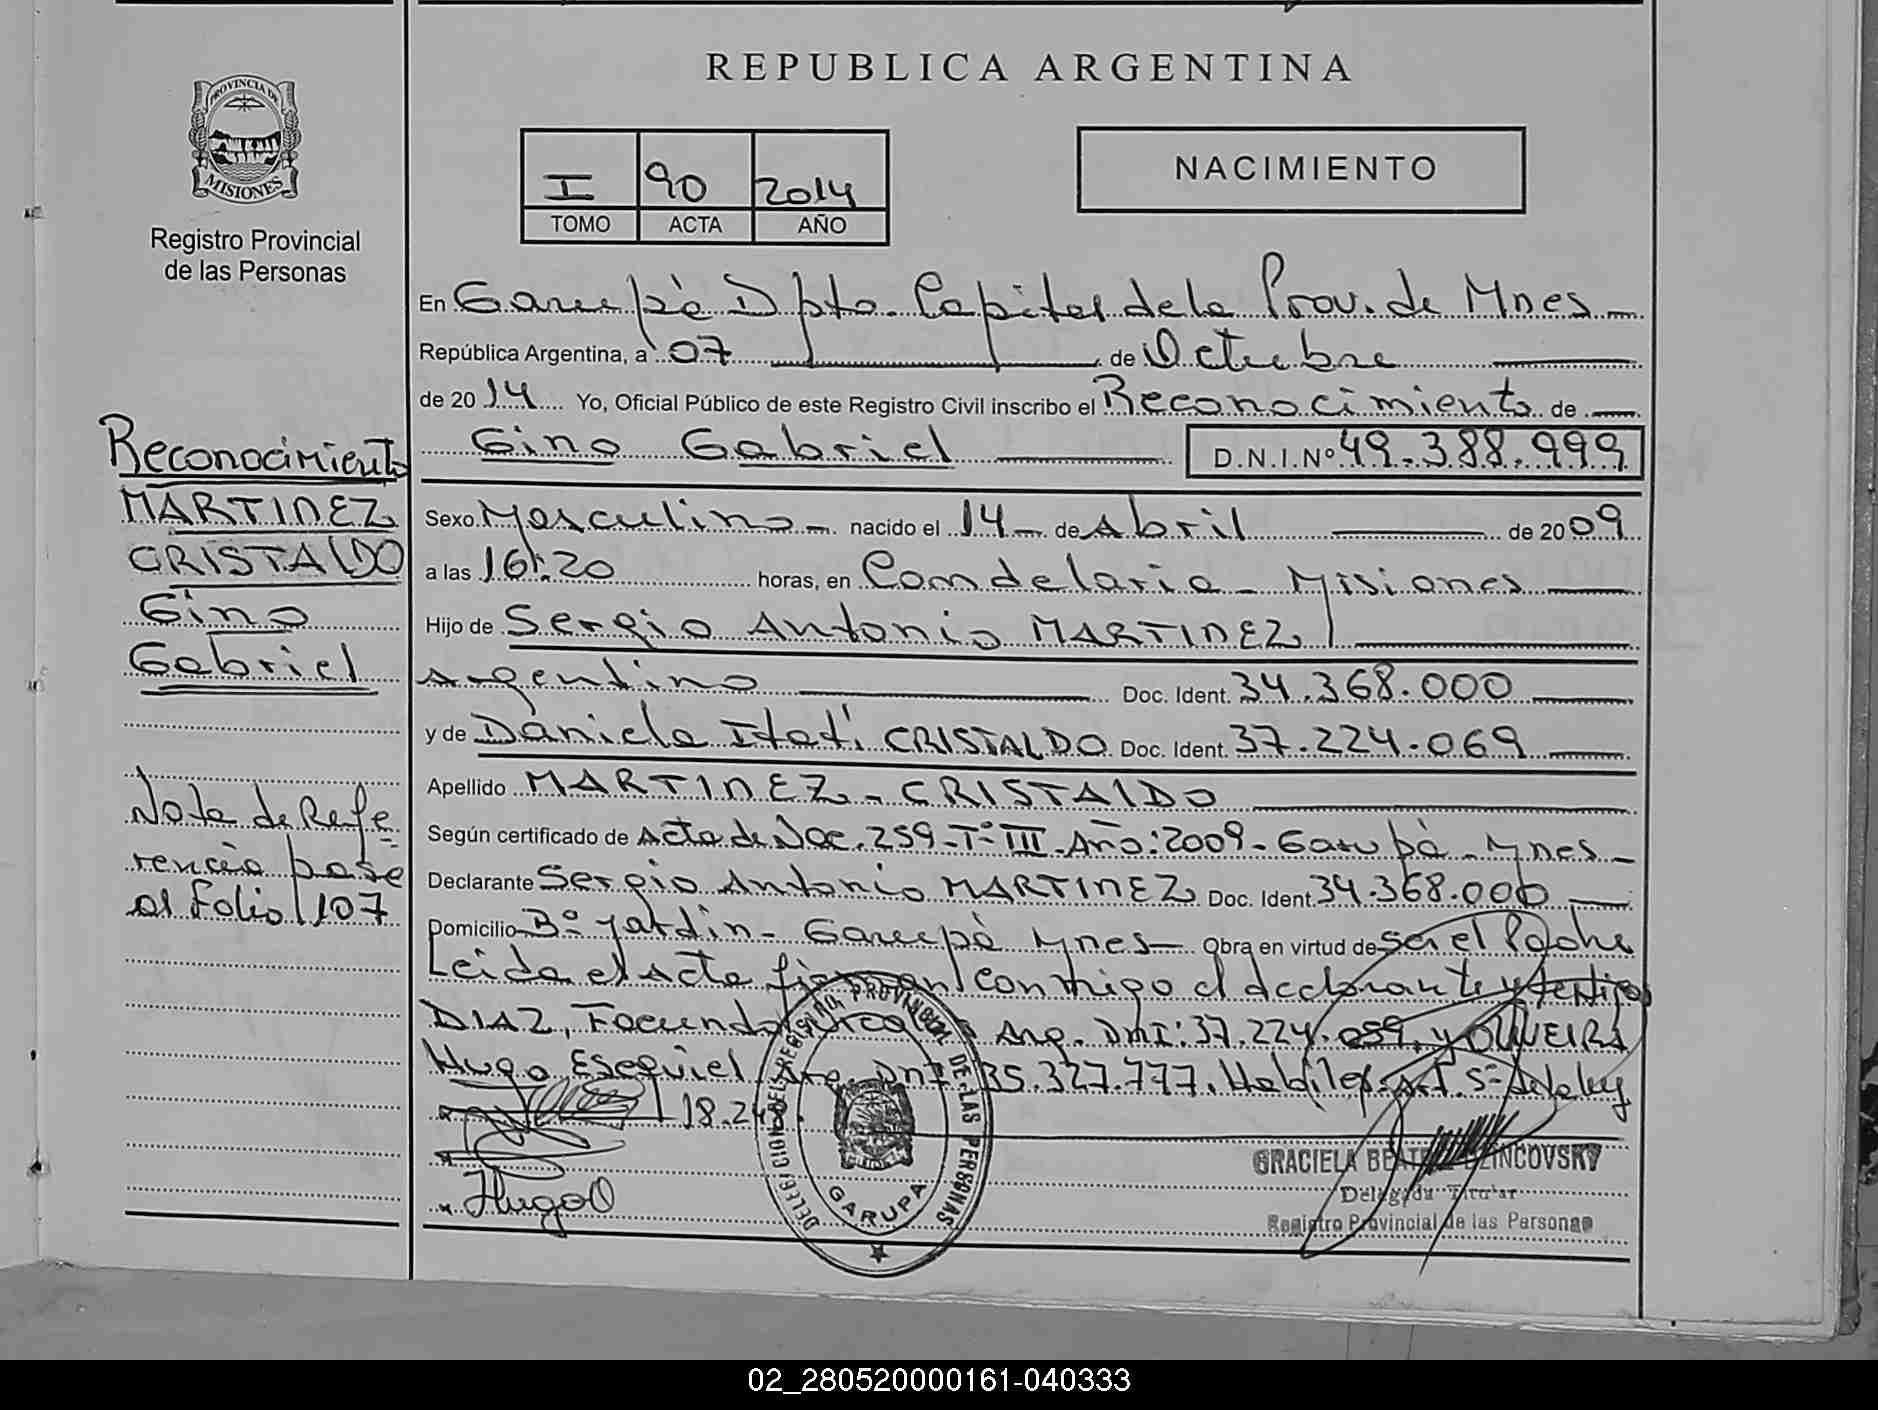 REPUBLICA ARGENTINA
PROVINCIA DE
MISIONES
Registro Provincial
de las Personas
I 90 2014
TOMO ACTA AÑO
NACIMIENTO
En Garupà Dpto. Capital de la Prov. de Mnes
República Argentina, a 07 de Octubre
de 2014 Yo, Oficial Público de este Registro Civil inscribo el Reconocimiento de
Gino Gabriel D.N.I.Nº 49.388.999
Sexo Masculino nacido el 14 de Abril de 2009
a las 16:20 horas, en Candelaria - Misiones
Hijo de Sergio Antonio MARTINEZ
Argentino Doc. Ident. 34.368.000
y de Daniela Itatí CRISTALDO Doc. Ident. 37.224.069
Apellido MARTINEZ - CRISTALDO
Según certificado de Acta de Nac. 259 - Tº III - Año: 2009 - Garupà - Mnes -
Declarante Sergio Antonio MARTINEZ Doc. Ident. 34.368.000
Domicilio Bº Jardin - Garupà Mnes - Obra en virtud de ser el Padre
Leida el Acta firman conmigo el declarante y testigos
DIAZ, Facundo Arg. DNI: 37.224.059, y OLIVEIRA
Hugo Esequiel Arg. DNI: 35.327.777. Habiles Art. 5º de la ley
18.248.
Hugo O
DELEGACION DEL REGISTRO PROVINCIAL DE LAS PERSONAS
GARUPA
GRACIELA BEATRIZ
Delegada Titular
Registro Provincial de las Personas
Reconocimiento
MARTINEZ
CRISTALDO
Gino
Gabriel
Nota de Refe
rencia pase
al folio 107
02_280520000161-040333